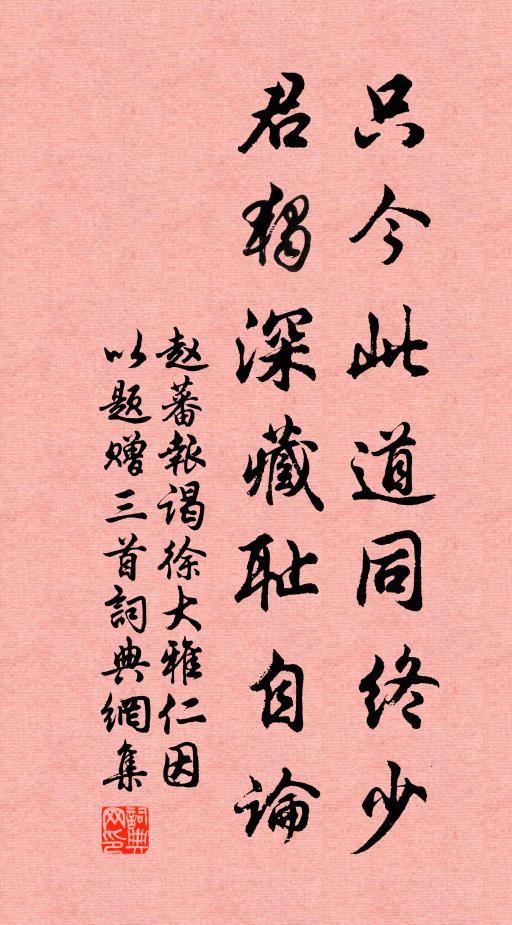 只今此道同终少
君独深藏耻自论
赵蕃報谒徐大雅仁因
以题赠三首詞典網集
詞典网印